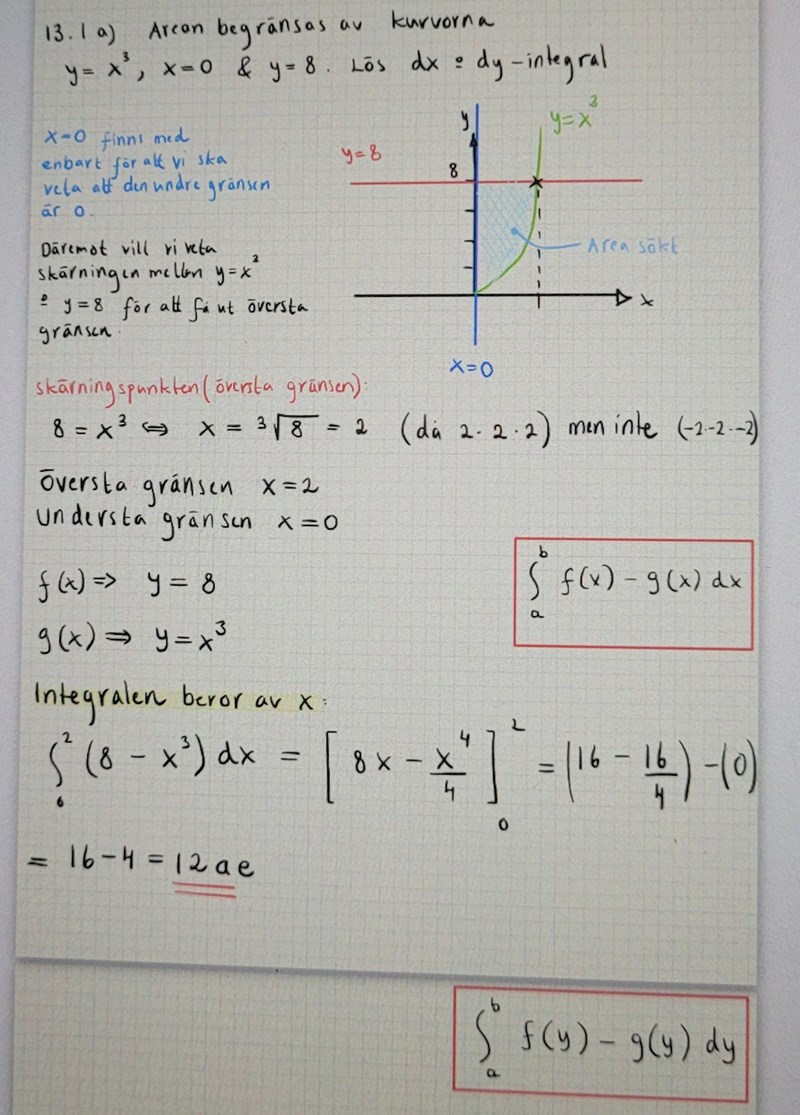 13.1 a) Arean begränsas av kurvorna
y = x³, x=0 & y=8. Lös dx o dy-integral
x=0 finns med
enbart för att vi ska
veta att den undre gränsen
är 0.
Däremot vill vi veta
skärningen mellan y=x³
o y=8 för att få ut översta
gränsen.
y=8
8
y
y=x³
Area sökt
x
x=0
skärningspunkten (översta gränsen):
8 = x³ ⇔ x = ³√8 = 2 (då 2·2·2) men inte (-2·-2·-2)
Översta gränsen x=2
Understa gränsen x=0
f(x) ⇒ y = 8
g(x) ⇒ y = x³
∫ₐᵇ f(x) - g(x) dx
Integralen beror av x:
∫₀² (8 - x³) dx = [8x - x⁴/4]₀² = (16 - 16/4) - (0)
= 16-4 = 12 ae
∫ₐᵇ f(y) - g(y) dy